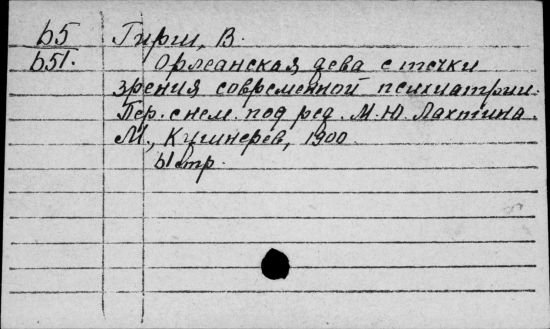 Б5 Гирш, В.
Б51. Орлеанская дева с точки
зрения современной психиатрии.
Пер. с нем. под ред. М. Ю. Лахтина.
М., Кушнерев, 1900.
стр.